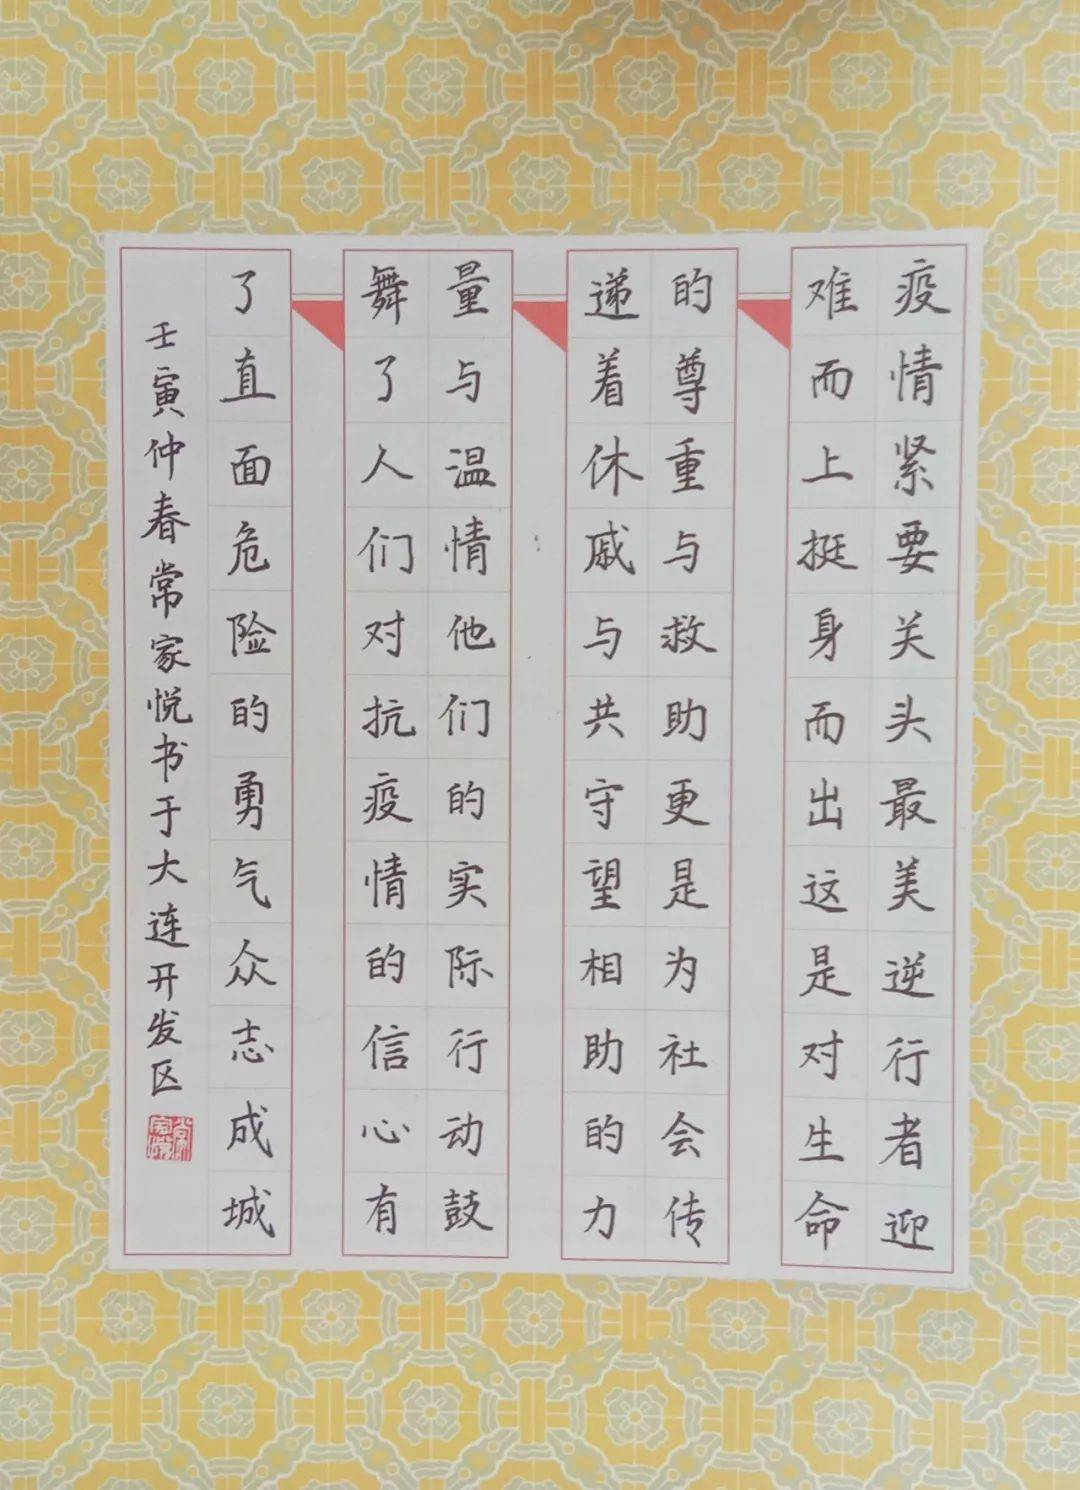 疫情紧要关头最美逆行者迎
难而上挺身而出这是对生命
的尊重与救助更是为社会传
递着休戚与共守望相助的力
量与温情他们的实际行动鼓
舞了人们对抗疫情的信心有
了直面危险的勇气众志成城
壬寅仲春常家悦书于大连开发区
常家悦